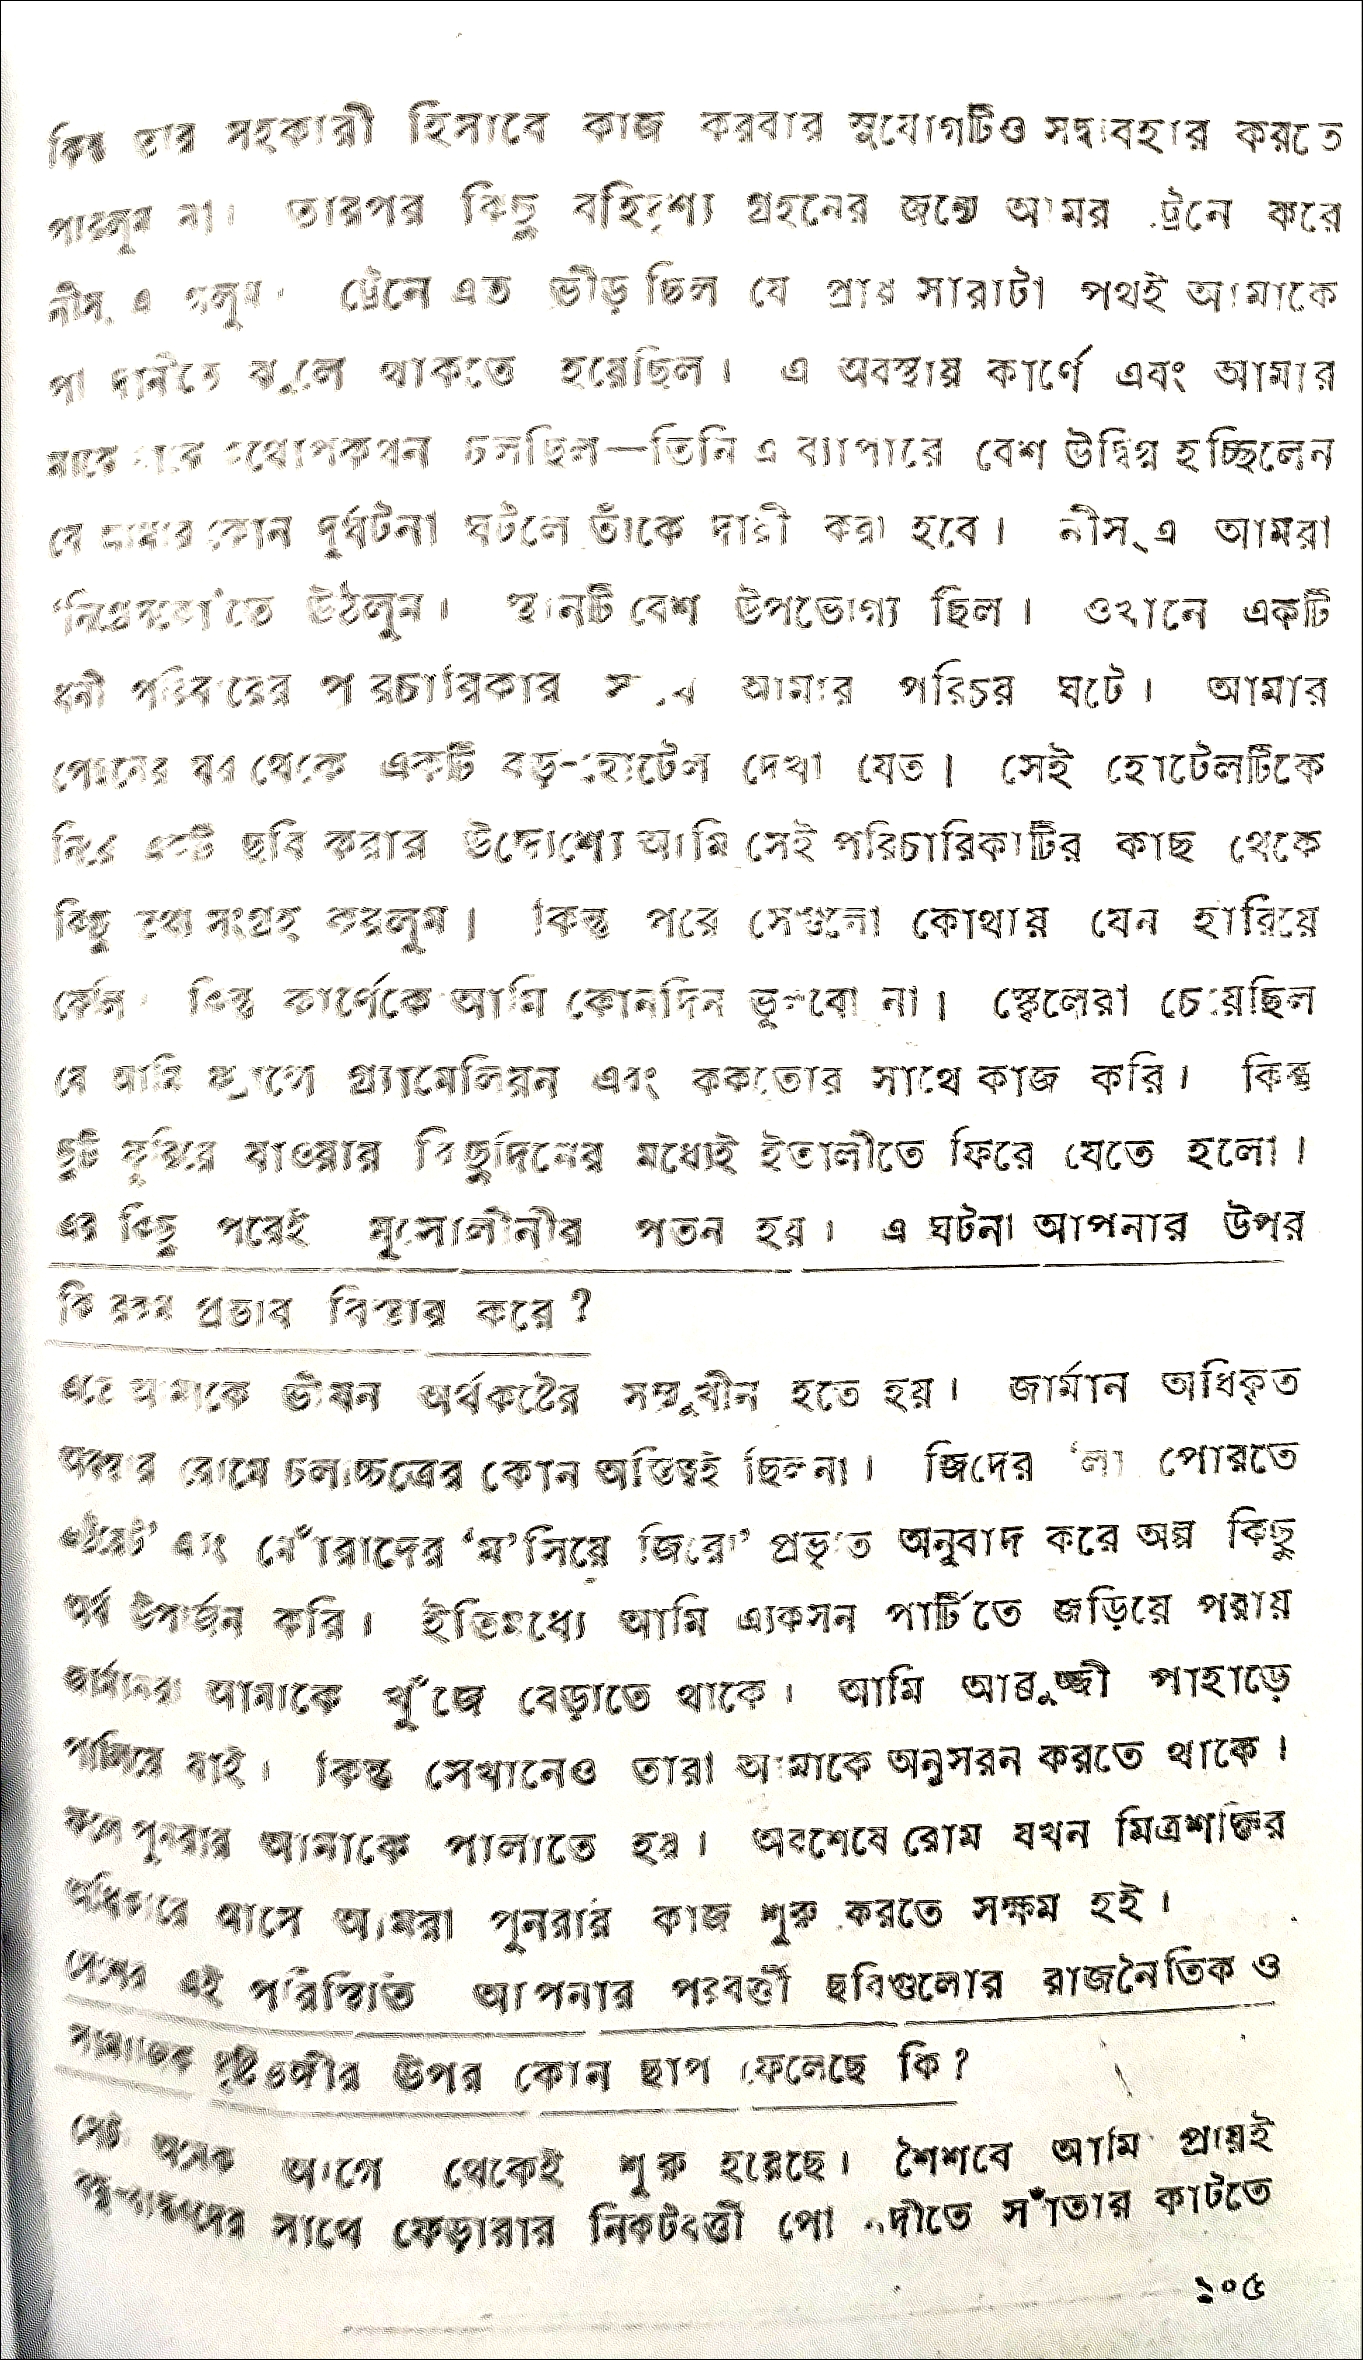 কিন্তু তার সহকারী হিসাবে কাজ করবার সুযোগটিও সদ্ব্যবহার করতে
পারলুম না। তারপর কিছু বহির্দৃশ্য গ্রহনের জন্যে আমরা ট্রেনে করে
নীস্ এ গেলুম। ট্রেনে এত ভীড় ছিল যে প্রায় সারাটা পথই আমাকে
পা দানীতে ঝুলে থাকতে হয়েছিল। এ অবস্থায় কার্ণে এবং আমার
মাঝে মাঝে কথোপকথন চলছিল—তিনি এ ব্যাপারে বেশ উদ্বিগ্ন হচ্ছিলেন
যে আমার কোন দুর্ঘটনা ঘটলে তাঁকে দায়ী করা হবে। নীস্ এ আমরা
উঠলুম। স্থানটি বেশ উপভোগ্য ছিল। ওখানে একটি
ধনী পরিবারের পরিচারিকার সঙ্গে আমার পরিচয় ঘটে। আমার
শোবার ঘর থেকে একটি বড়-হোটেল দেখা যেত। সেই হোটেলটিকে
নিয়ে একটি ছবি করার উদ্দ্যেশ্যে আমি সেই পরিচারিকাটির কাছ থেকে
কিছু তথ্য সংগ্রহ করলুম। কিন্তু পরে সেগুলো কোথায় যেন হারিয়ে
ফেলি। কিন্তু কার্ণেকে আমি কোনদিন ভুলবো না। স্কেলেরা চেয়েছিল
যে আমি ফ্রান্সে গ্র্যামেলিয়ন এবং ককতোর সাথে কাজ করি। কিন্তু
ছুটি ফুরিয়ে যাওয়ার কিছুদিনের মধ্যেই ইতালীতে ফিরে যেতে হলো।
এর কিছু পরেই মুসোলীনীর পতন হয়। এ ঘটনা আপনার উপর
কি রকম প্রভাব বিস্তার করে?
এতে আমাকে ভীষন অর্থকষ্টের সম্মুখীন হতে হয়। জার্মান অধিকৃত
অবস্থায় রোমে চলচ্চিত্রের কোন অস্তিত্বই ছিলনা। জিদের ‘লা পোরতে
এতরেট’ এবং মোঁরাদের ‘ম’সিয়ে জিরো’ প্রভৃতি অনুবাদ করে অল্প কিছু
অর্থ উপার্জন করি। ইতিমধ্যে আমি এ্যকসন পার্টিতে জড়িয়ে পরায়
জার্মানেরা আমাকে খুঁজে বেড়াতে থাকে। আমি আব্রুজ্জী পাহাড়ে
পালিয়ে যাই। কিন্তু সেখানেও তারা আমাকে অনুসরন করতে থাকে।
ফলে পুনরায় আমাকে পালাতে হয়। অবশেষে রোম যখন মিত্রশক্তির
অধিকারে আসে আমরা পুনরায় কাজ শুরু করতে সক্ষম হই।
দেশের এই পরিস্থিতি আপনার পরবর্ত্তী ছবিগুলোর রাজনৈতিক ও
সামাজিক দৃষ্টিভঙ্গীর উপর কোন ছাপ ফেলেছে কি?
সেটা অনেক আগে থেকেই শুরু হয়েছে। শৈশবে আমি প্রায়ই
সাথে ফেড়ারার নিকটবর্ত্তী পো নদীতে সাঁতার কাটতে
১০৫